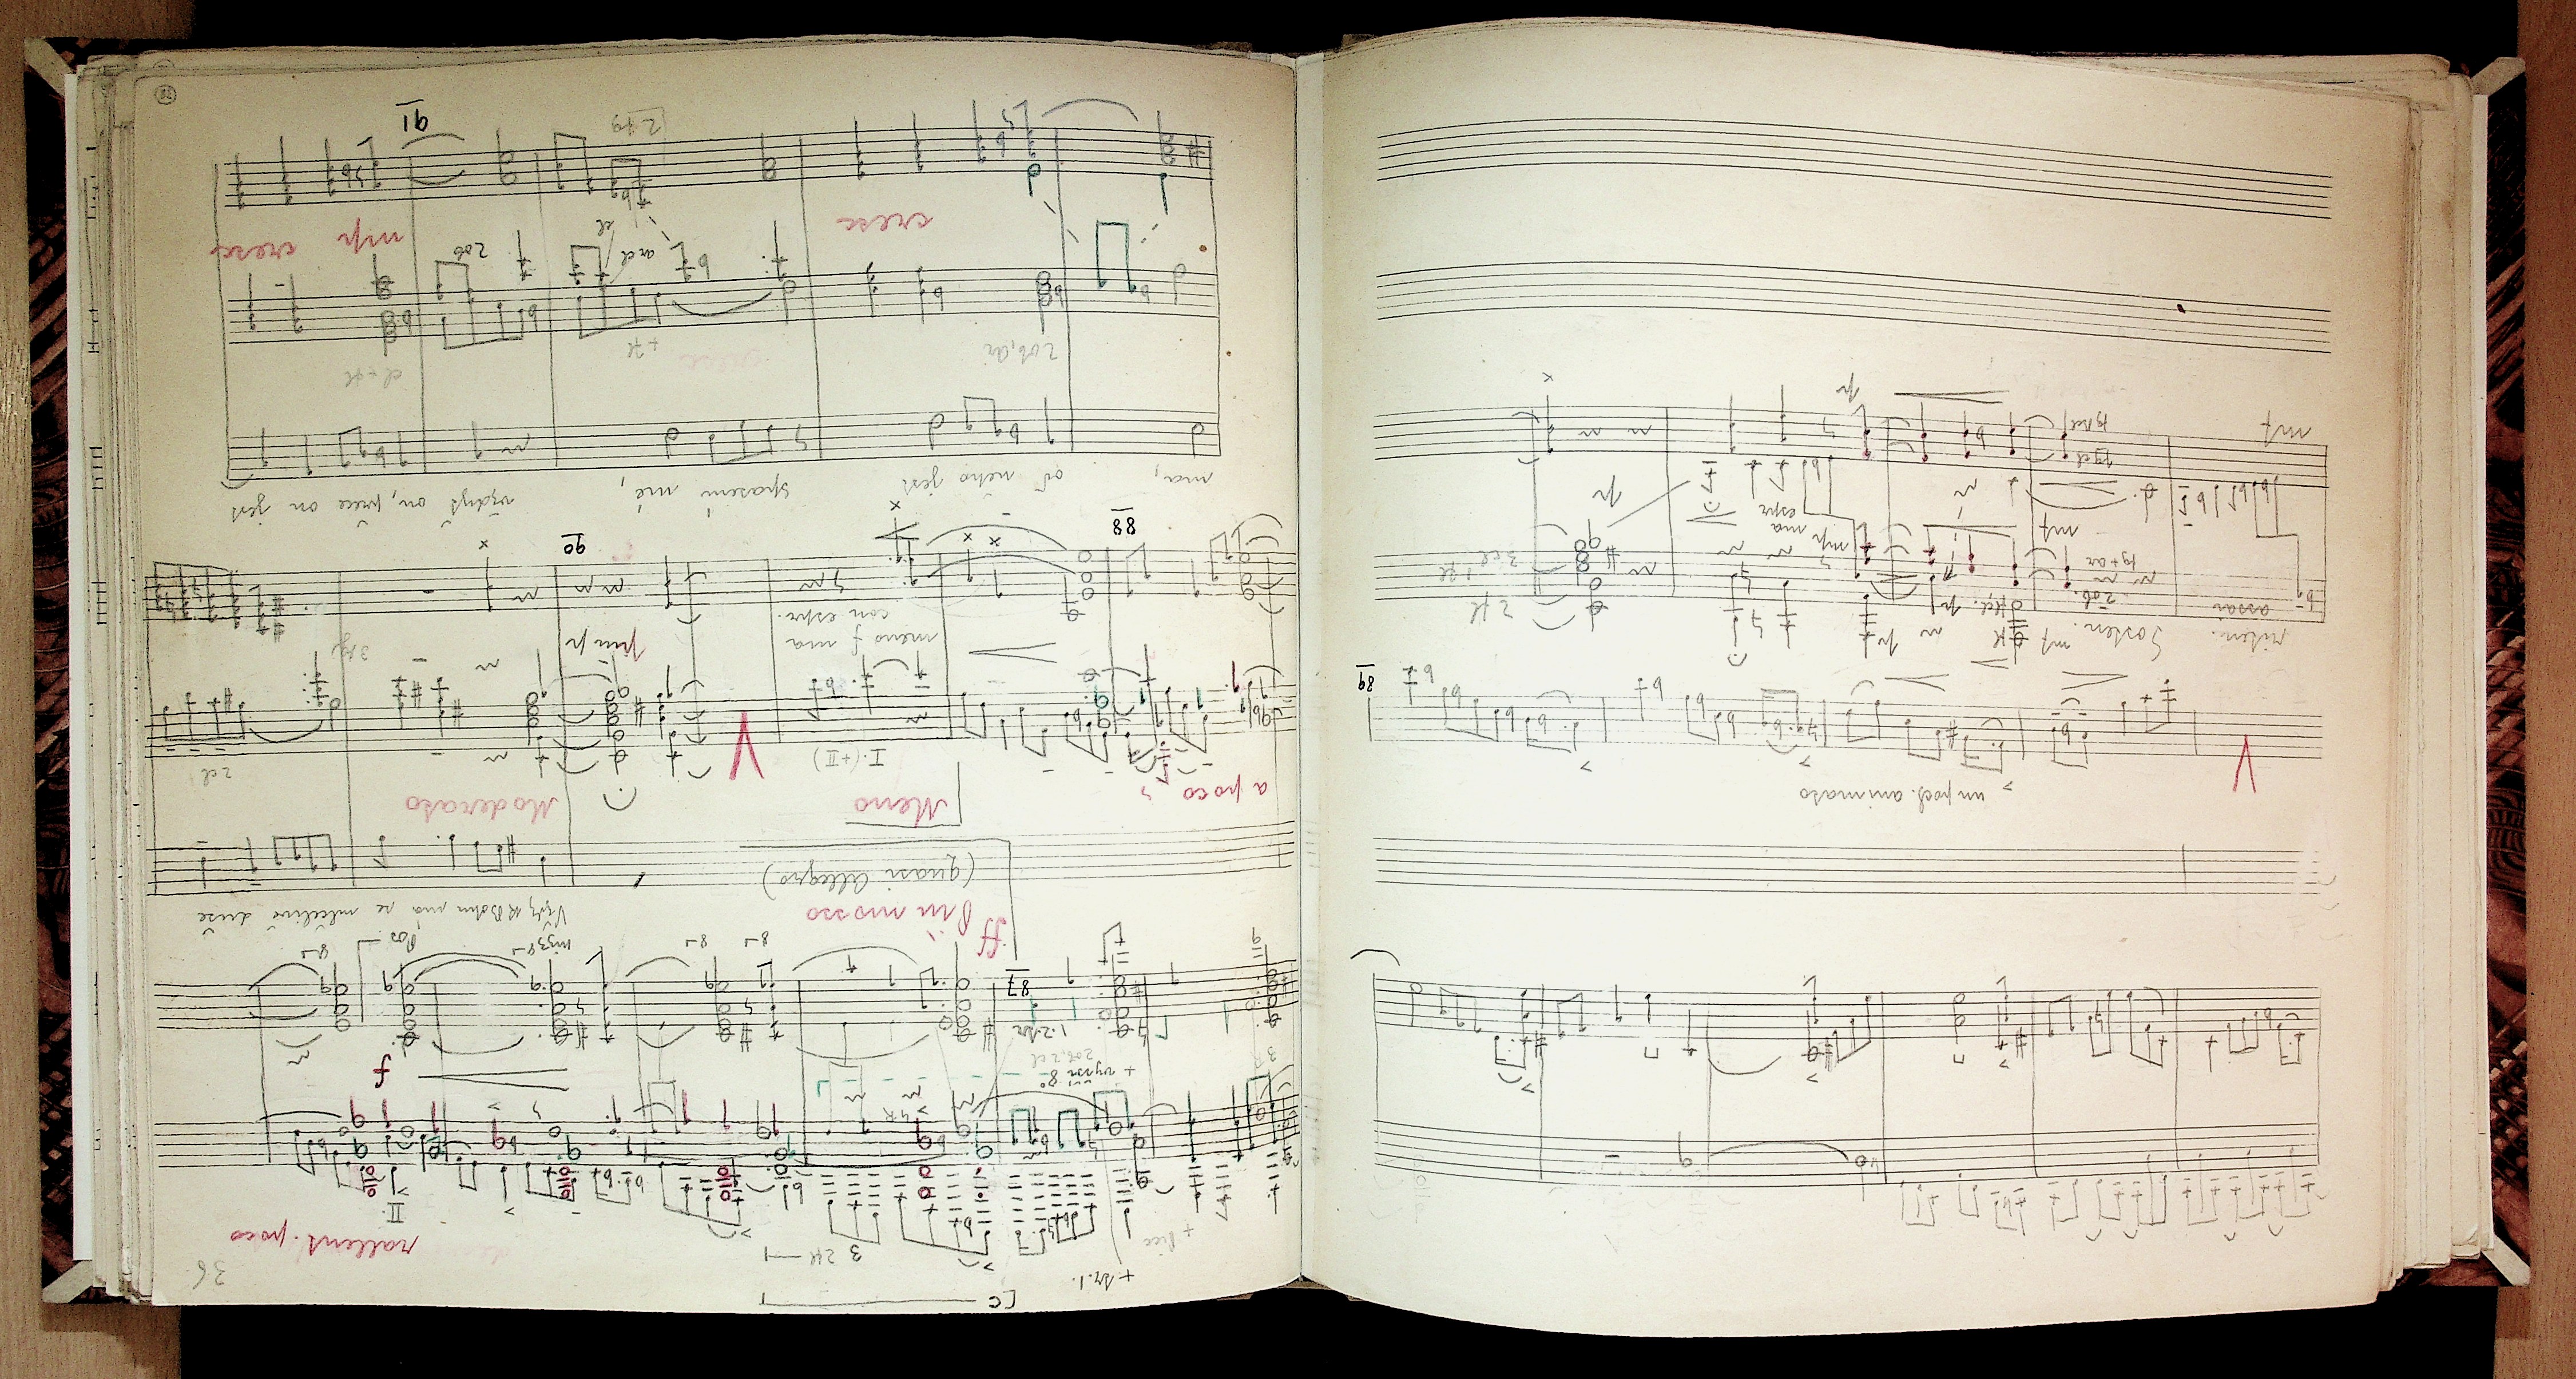 un poch. animato
V
89
riten.
assai
Sosten.
mf
fl
p
2 ob.
fl cl.
p
fg + ar
mf
mp
ma
espr
2 fl
1 fl
3 cl
p
mf
fg cl
p
36
C
+ tr. 1.
+ Picc
3 2 fl
rallent. poco
II.
+ vyšší 8°
2 ob, 2 cl
f
1. 2 tr
87
8
8
niž 8
Pos
8
ff
Più mosso
(quasi Allegro)
Vždy k Bohu má se mlčelivě duše
a poco
Meno
Moderato
I. (+ II)
V
2 cl
meno f ma
con espr.
più p
3 fg
88
90
ma, od něho jest spasení mé, vždyť on, přece on jest
2 ob, ar
+ fl
cl + fl
ar cl
cl
2 ob
cresc
mp cresc
2 fg
91